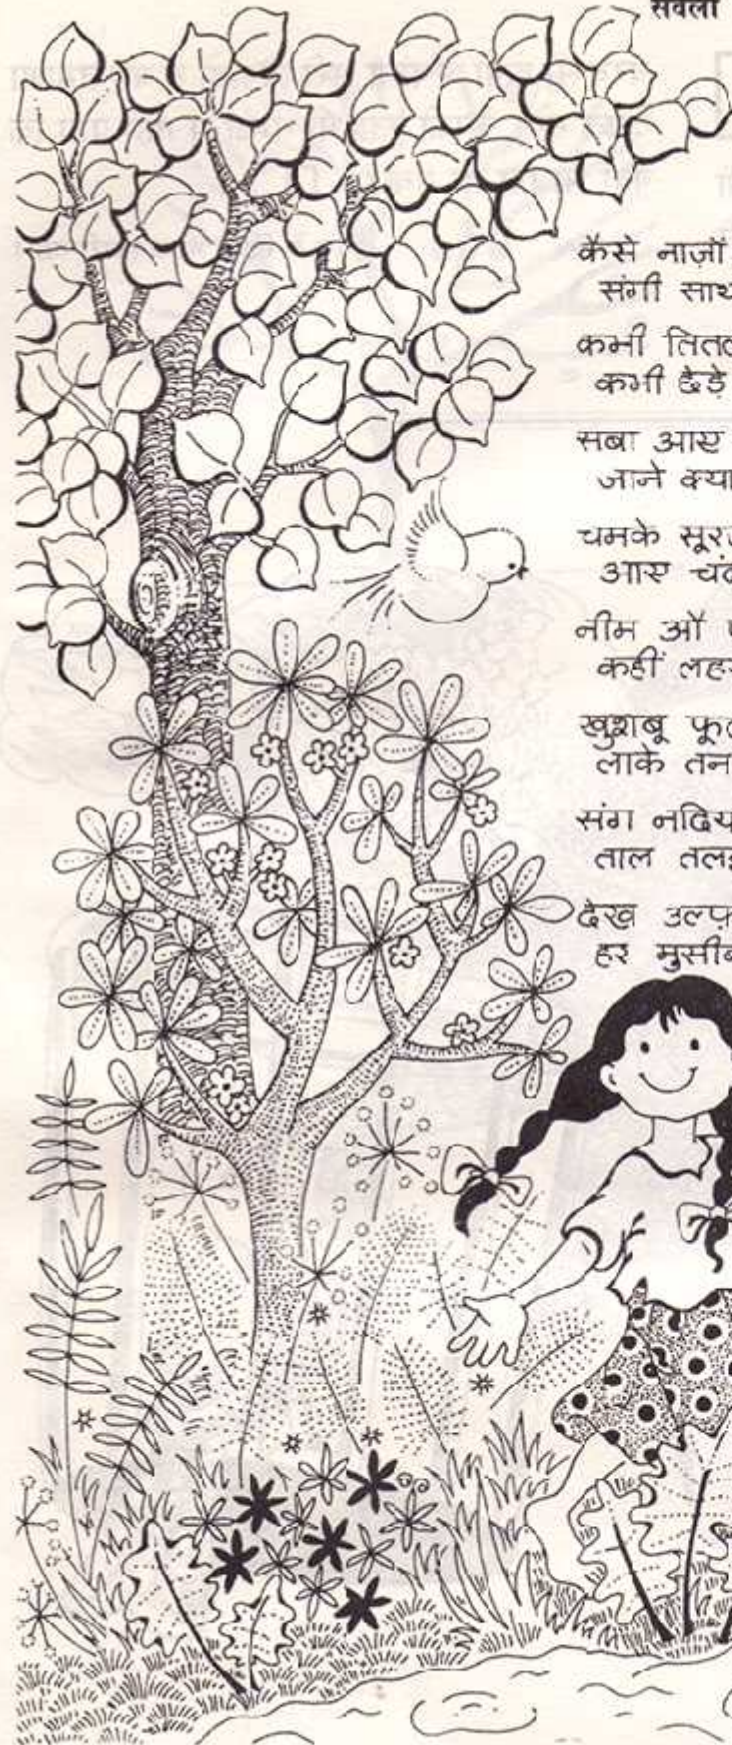 कैसे नाज़ों
संगी साथ
कभी तितल
कभी छेड़े
सबा आए
जाने क्या
चमके सूर
आए चं
नीम औ
कहीं लह
खुशबू फू
लाके तन
संग नदिय
ताल तल
देख उल्फ़
हर मुसीब